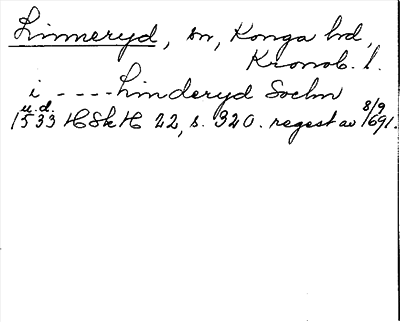 Linneryd, sn, Konga hrd,
Kronob. l.
i - - - - Linderyd Sochn
u.d.
1533 HSkH 22, s. 320. regest av 8/9 1691.